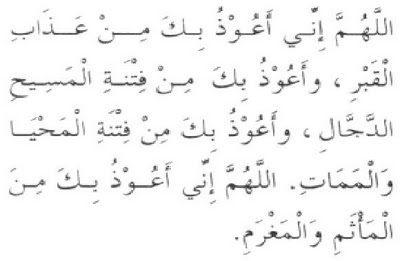 اللَّهُمَّ إِنِّي أَعُوْذُ بِكَ مِنْ عَذَابِ
الْقَبْرِ ، وَأَعُوْذُ بِكَ مِنْ فِتْنَةِ الْمَسِيحِ
الدَّجَّالِ ، وَأَعُوْذُ بِكَ مِنْ فِتْنَةِ الْمَحْيَا
وَالْمَمَاتِ. اللَّهُمَّ إِنِّي أَعُوْذُ بِكَ مِنَ
الْمَأْثَمِ وَالْمَغْرَمِ.